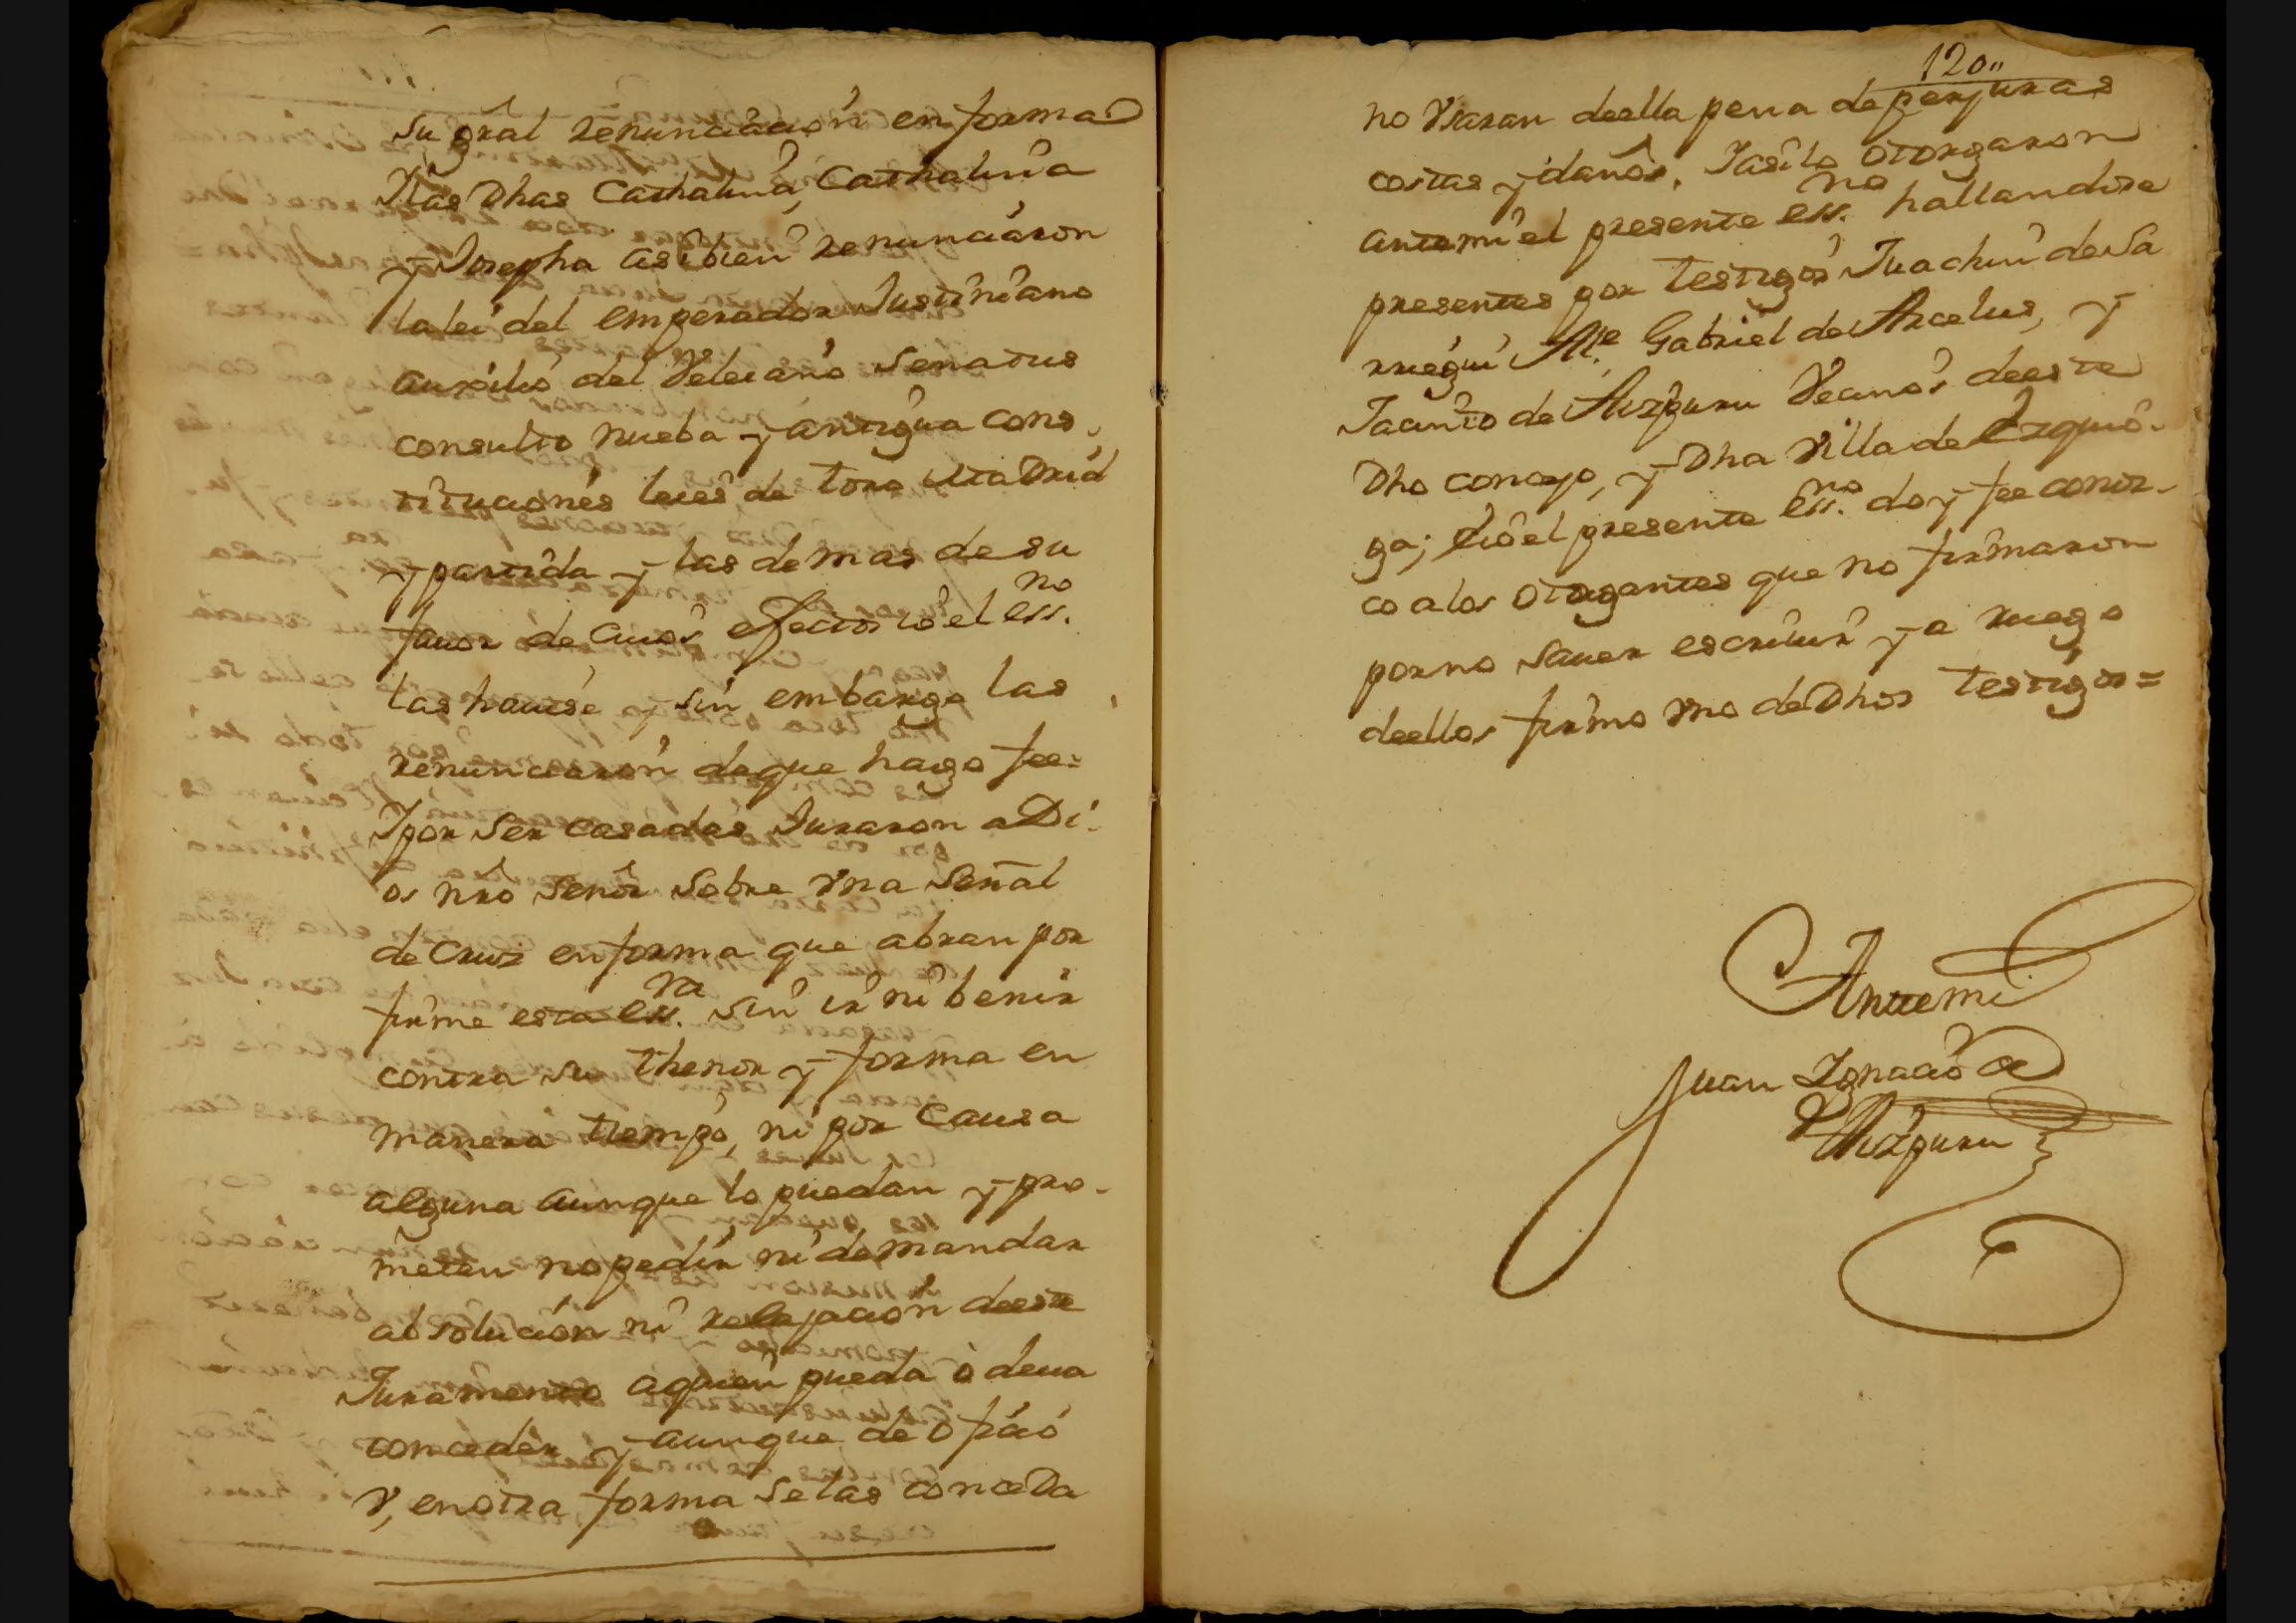 su gral renunciación en forma
Ylas Dhas Cathalina, Cathalina
y Josepha asibien renunciaron
lalei del emperador Justiniano
auxilio del Veleiano Senatus
consulto nueba y antigua cons
tituciones leies de toro Madrid
y partida y las demas de su
fauor de cuios efectos ió el essno.
las hauisé y sin embargo las
renunciaron deque hago fee:
Ypor ser casadas Juraron a Di-
os nro señor sobre vna señal
de Cruz en forma que abran por
firme esta essra. sin ir ni benir
contra su thenor y forma en
manera tiempo, ni por causa
alguna aunque lo puedan y pro-
meten no pedir ni demandar
absolución ni relajación deeste
Juramento aquien pueda ò deua
conceder y aunque de ofició
v, en otra forma selas conceda
120,,
no vsaran deella pena de perjuras
costas y daños. Yasilo otorgaron
antemi el presente essno. hallandose
presentes por testigos Juachin de Sa
rriegui Mre. Gabriel de Arcelus, y
Jacinto de Aizpuru Vecinos deeste
Dho concejo, y Dha Villa de Ezquio-
ga; Eióel presente essno. doy fee conoz-
co a los otorgantes que no firmaron
porno sauer escriuir y a ruego
deellos firmo vno de Dhos testigos =
Antemi
Juan Ignacio de
Aizpuru